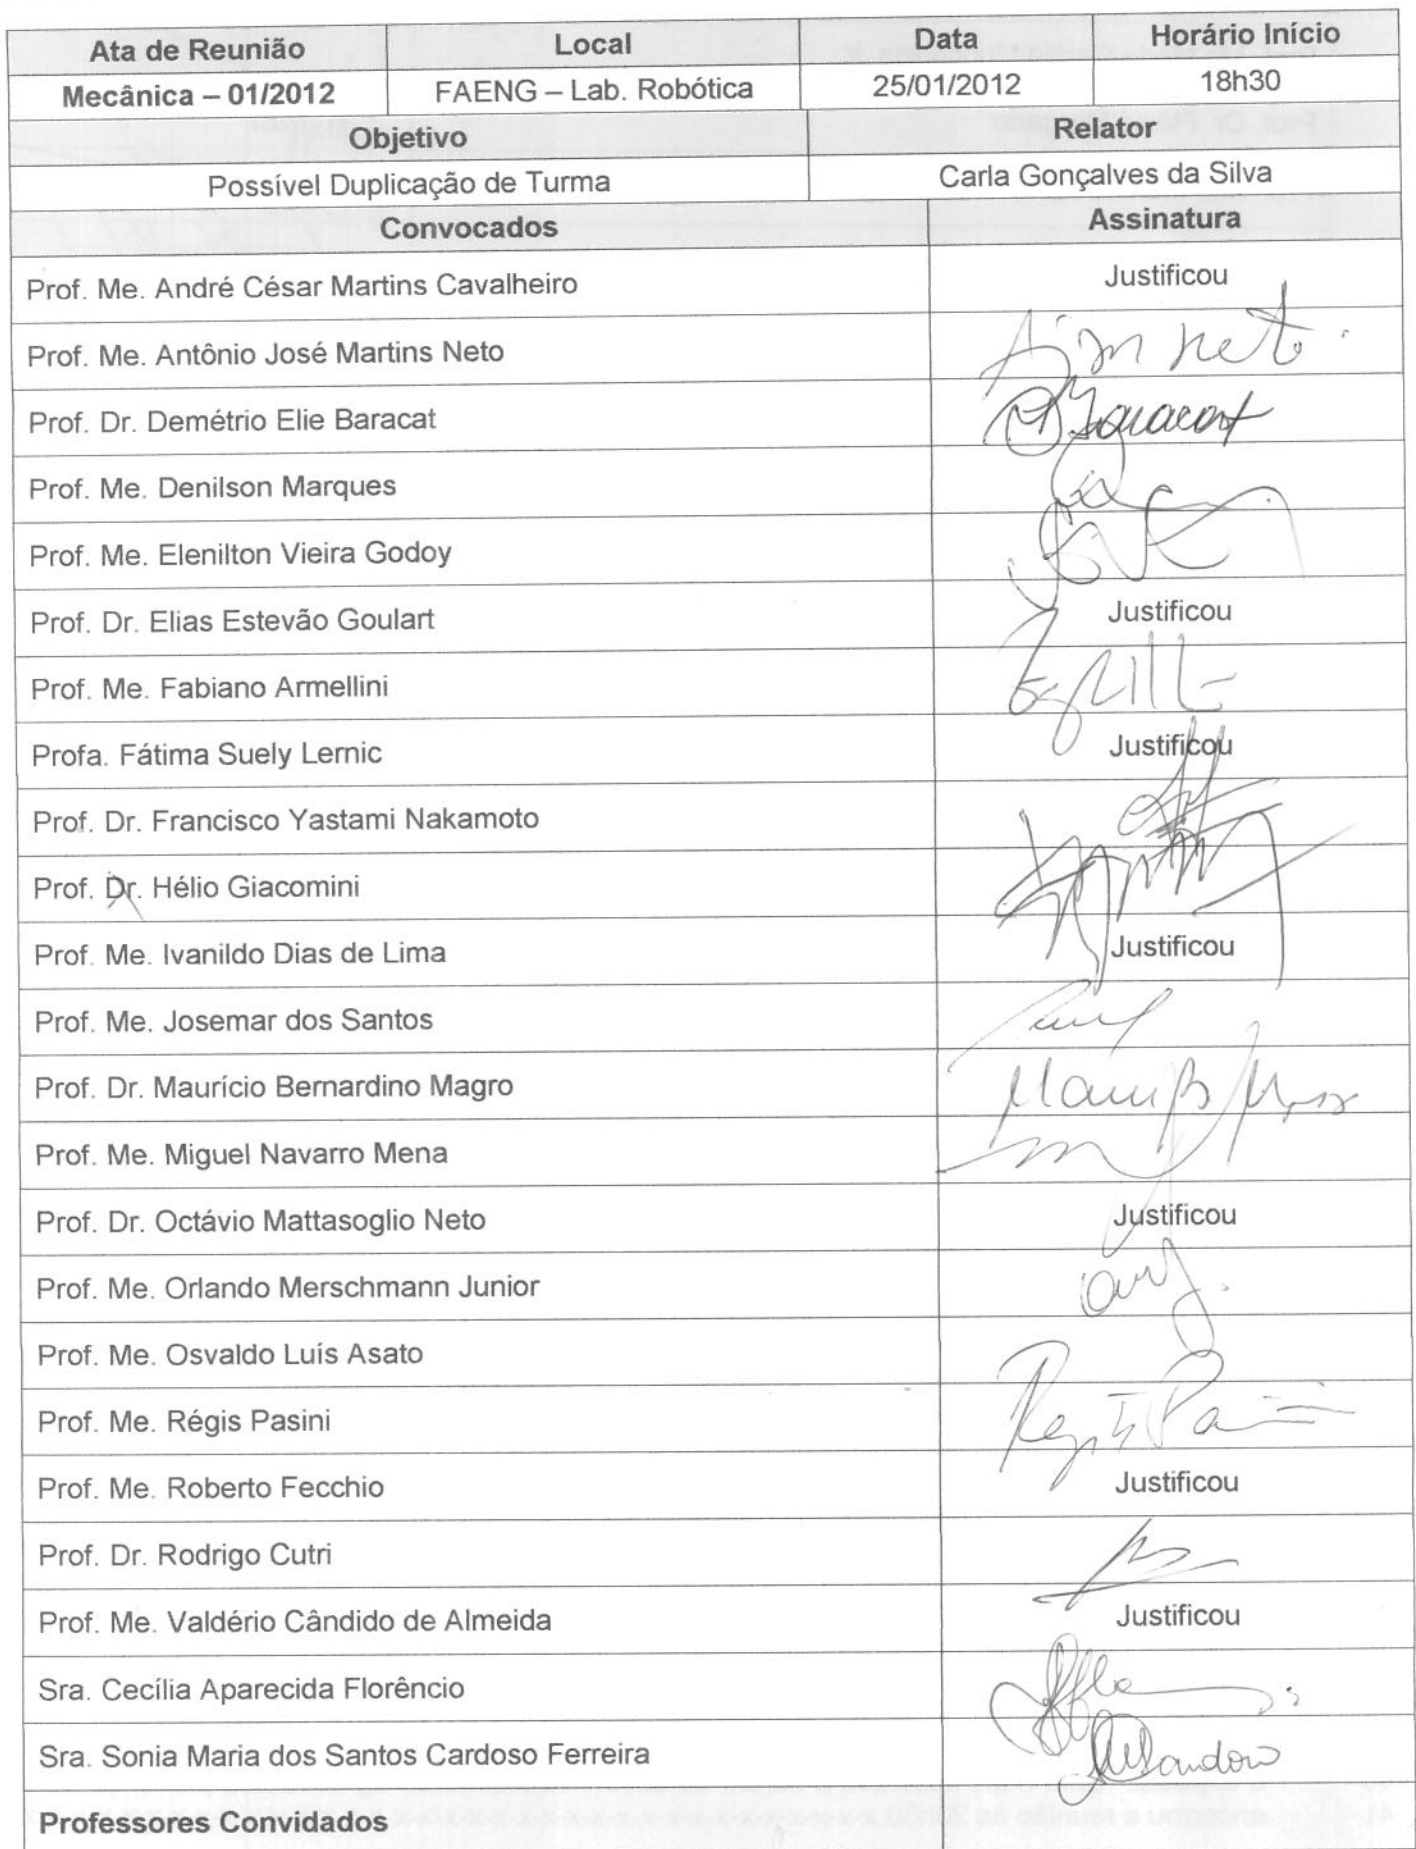 Ata de Reunião Local Data Horário Início
Mecânica – 01/2012 FAENG – Lab. Robótica 25/01/2012 18h30
Objetivo Relator
Possível Duplicação de Turma Carla Gonçalves da Silva
Convocados Assinatura
Prof. Me. André César Martins Cavalheiro Justificou
Prof. Me. Antônio José Martins Neto Neto
Prof. Dr. Demétrio Elie Baracat Baracat
Prof. Me. Denilson Marques
Prof. Me. Elenilton Vieira Godoy
Prof. Dr. Elias Estevão Goulart Justificou
Prof. Me. Fabiano Armellini
Profa. Fátima Suely Lernic Justificou
Prof. Dr. Francisco Yastami Nakamoto
Prof. Dr. Hélio Giacomini
Prof. Me. Ivanildo Dias de Lima Justificou
Prof. Me. Josemar dos Santos
Prof. Dr. Maurício Bernardino Magro
Prof. Me. Miguel Navarro Mena
Prof. Dr. Octávio Mattasoglio Neto Justificou
Prof. Me. Orlando Merschmann Junior
Prof. Me. Osvaldo Luís Asato
Prof. Me. Régis Pasini
Prof. Me. Roberto Fecchio Justificou
Prof. Dr. Rodrigo Cutri
Prof. Me. Valdério Cândido de Almeida Justificou
Sra. Cecília Aparecida Florêncio
Sra. Sonia Maria dos Santos Cardoso Ferreira
Professores Convidados